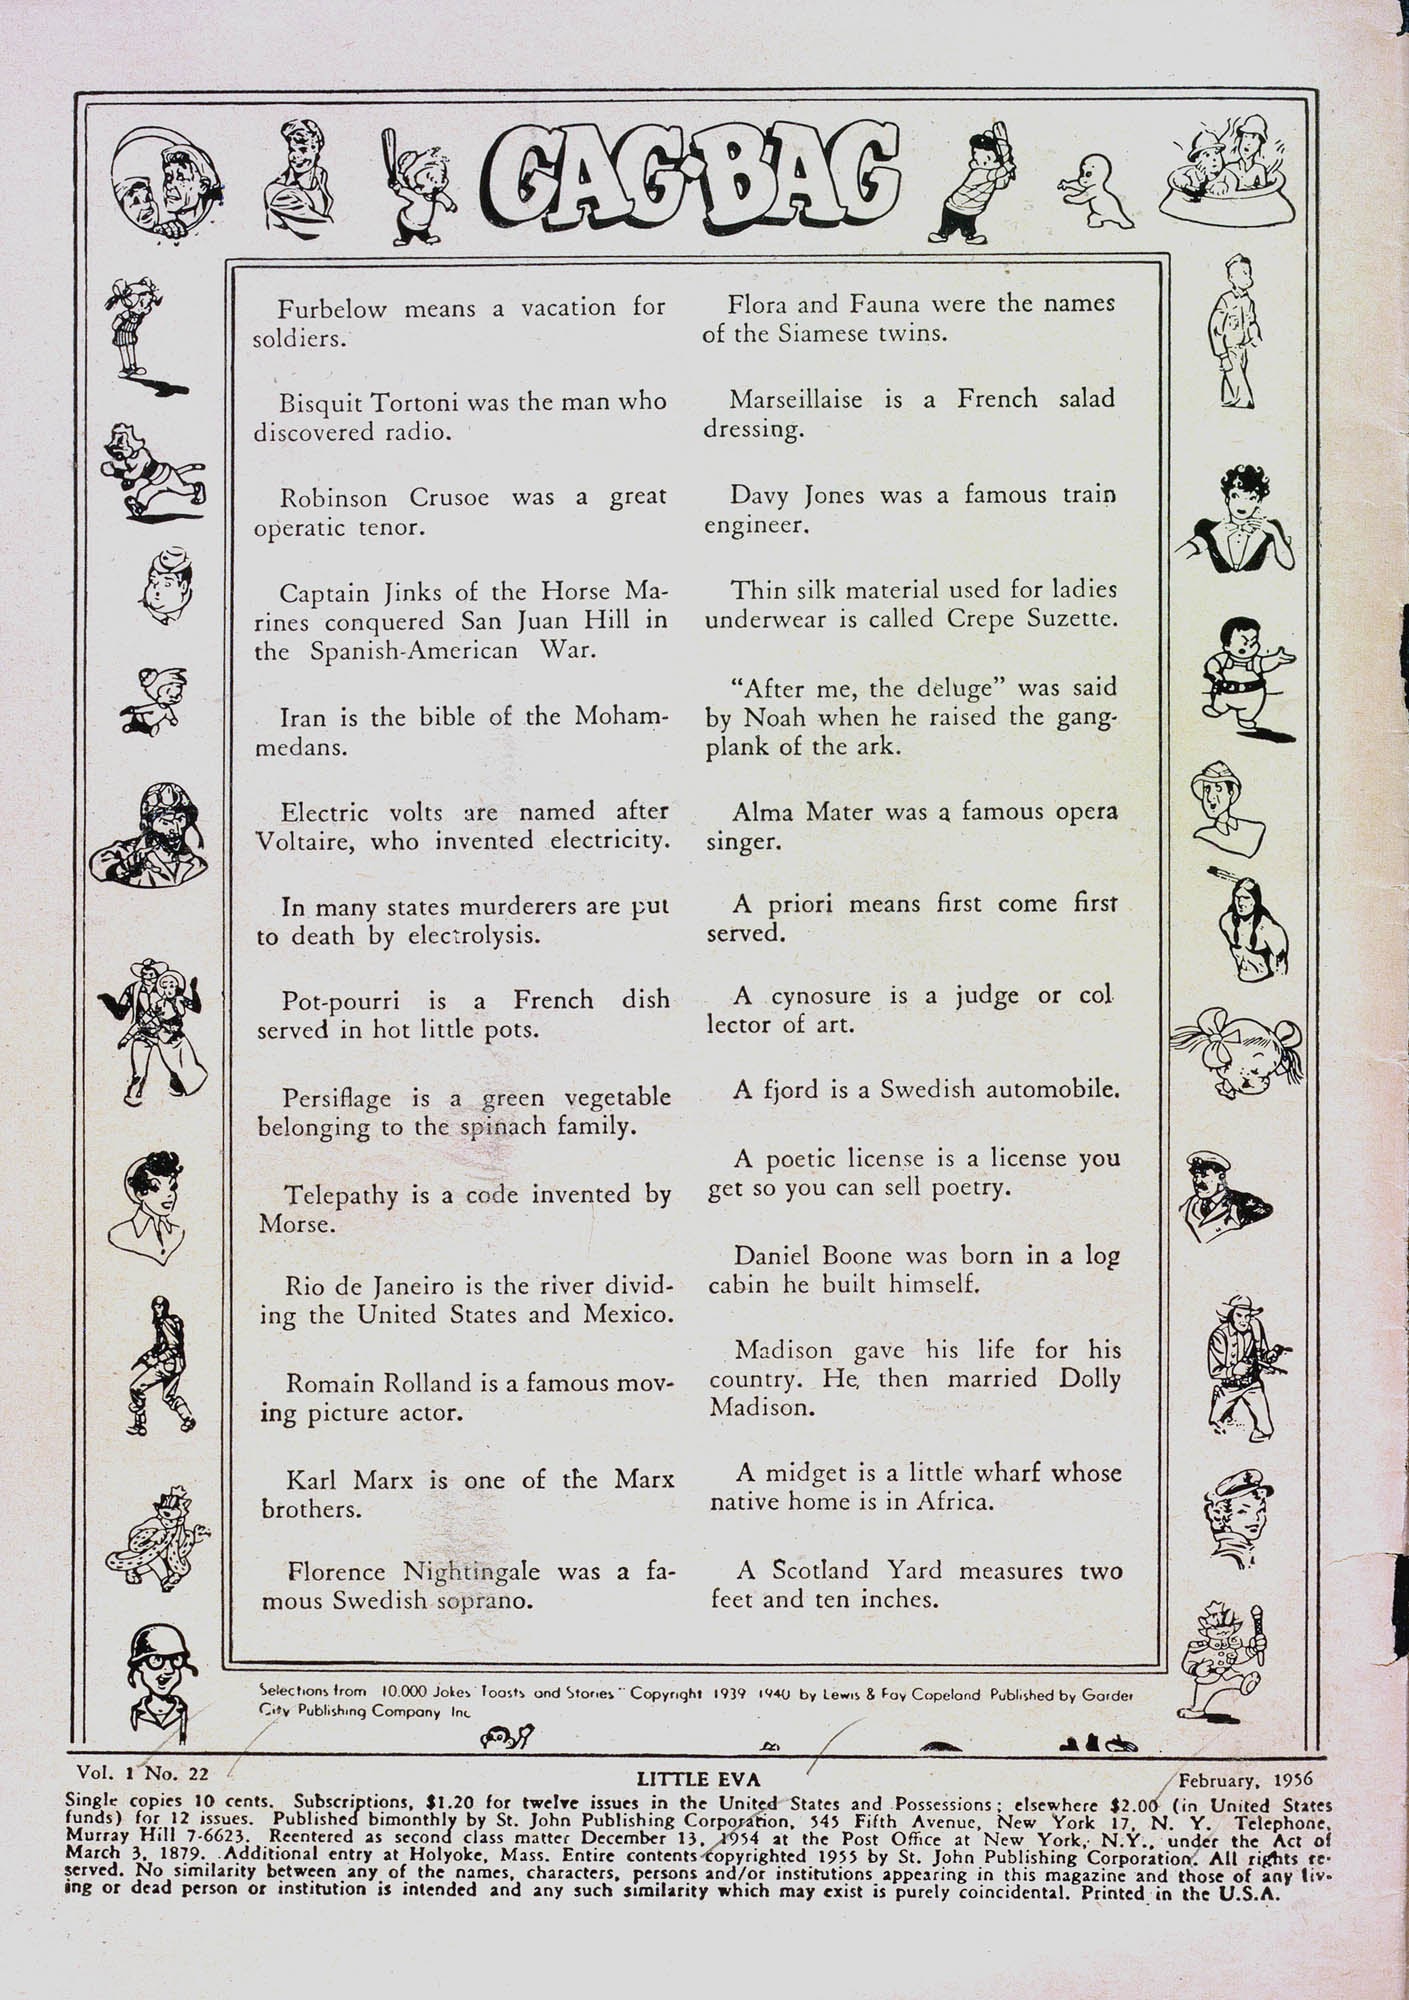 GAG·BAG
Furbelow means a vacation for
soldiers.
Bisquit Tortoni was the man who
discovered radio.
Robinson Crusoe was a great
operatic tenor.
Captain Jinks of the Horse Ma-
rines conquered San Juan Hill in
the Spanish-American War.
Iran is the bible of the Moham-
medans.
Electric volts are named after
Voltaire, who invented electricity.
In many states murderers are put
to death by electrolysis.
Pot-pourri is a French dish
served in hot little pots.
Persiflage is a green vegetable
belonging to the spinach family.
Telepathy is a code invented by
Morse.
Rio de Janeiro is the river divid-
ing the United States and Mexico.
Romain Rolland is a famous mov-
ing picture actor.
Karl Marx is one of the Marx
brothers.
Florence Nightingale was a fa-
mous Swedish soprano.
Flora and Fauna were the names
of the Siamese twins.
Marseillaise is a French salad
dressing.
Davy Jones was a famous train
engineer.
Thin silk material used for ladies
underwear is called Crepe Suzette.
"After me, the deluge" was said
by Noah when he raised the gang-
plank of the ark.
Alma Mater was a famous opera
singer.
A priori means first come first
served.
A cynosure is a judge or col
lector of art.
A fjord is a Swedish automobile.
A poetic license is a license you
get so you can sell poetry.
Daniel Boone was born in a log
cabin he built himself.
Madison gave his life for his
country. He, then married Dolly
Madison.
A midget is a little wharf whose
native home is in Africa.
A Scotland Yard measures two
feet and ten inches.
Selections from 10.000 Jokes Toasts and Stories" Copyright 1939 1940 by Lewis & Fay Copeland Published by Garder
City Publishing Company Inc
Vol. 1 No. 22 LITTLE EVA February, 1956
Single copies 10 cents. Subscriptions, $1.20 for twelve issues in the United States and Possessions; elsewhere $2.00 (in United States
funds) for 12 issues. Published bimonthly by St. John Publishing Corporation, 545 Fifth Avenue, New York 17, N. Y. Telephone,
Murray Hill 7-6623. Reentered as second class matter December 13, 1954 at the Post Office at New York, N.Y., under the Act of
March 3, 1879. Additional entry at Holyoke, Mass. Entire contents copyrighted 1955 by St. John Publishing Corporation. All rights re-
served. No similarity between any of the names, characters, persons and/or institutions appearing in this magazine and those of any liv-
ing or dead person or institution is intended and any such similarity which may exist is purely coincidental. Printed in the U.S.A.